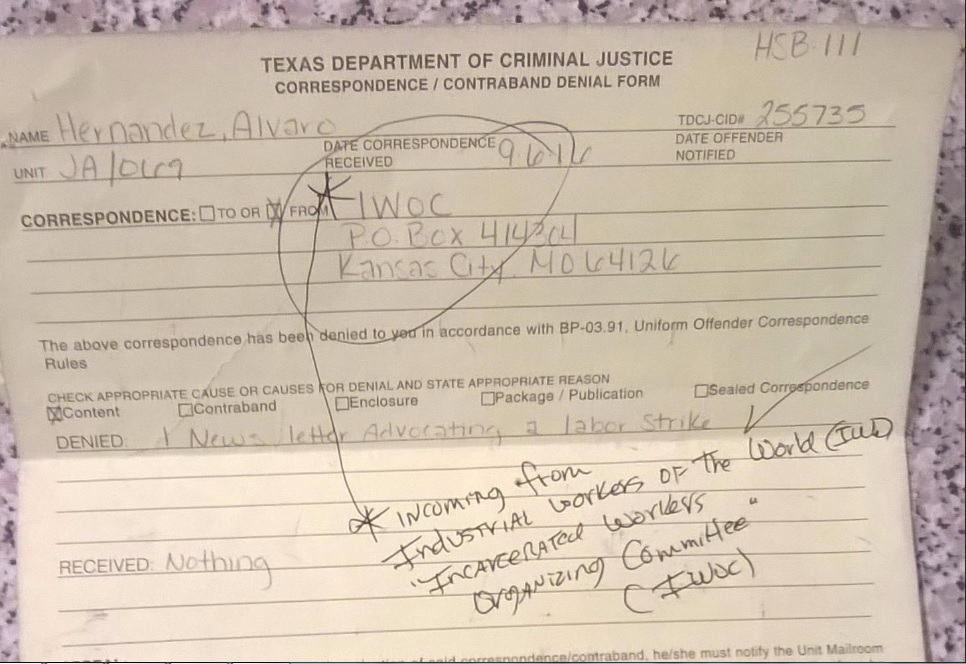 HSB-111
TEXAS DEPARTMENT OF CRIMINAL JUSTICE
CORRESPONDENCE / CONTRABAND DENIAL FORM
NAME Hernandez, Alvaro
TDCJ-CID# 255735
UNIT JA/069
DATE CORRESPONDENCE RECEIVED 9.6.16
DATE OFFENDER NOTIFIED
CORRESPONDENCE: ☐ TO OR ☒ FROM * IWOC
P.O. Box 414304
Kansas City MO 64126
The above correspondence has been denied to you in accordance with BP-03.91, Uniform Offender Correspondence
Rules
CHECK APPROPRIATE CAUSE OR CAUSES FOR DENIAL AND STATE APPROPRIATE REASON
☒ Content ☐ Contraband ☐ Enclosure ☐ Package / Publication ☐ Sealed Correspondence
DENIED: 1 News letter Advocating a labor Strike
* INCOMING from
Industrial Workers OF The World (IWW)
"INCARCERATED Workers
Organizing Committee"
(IWOC)
RECEIVED: Nothing
said correspondence/contraband, he/she must notify the Unit Mailroom